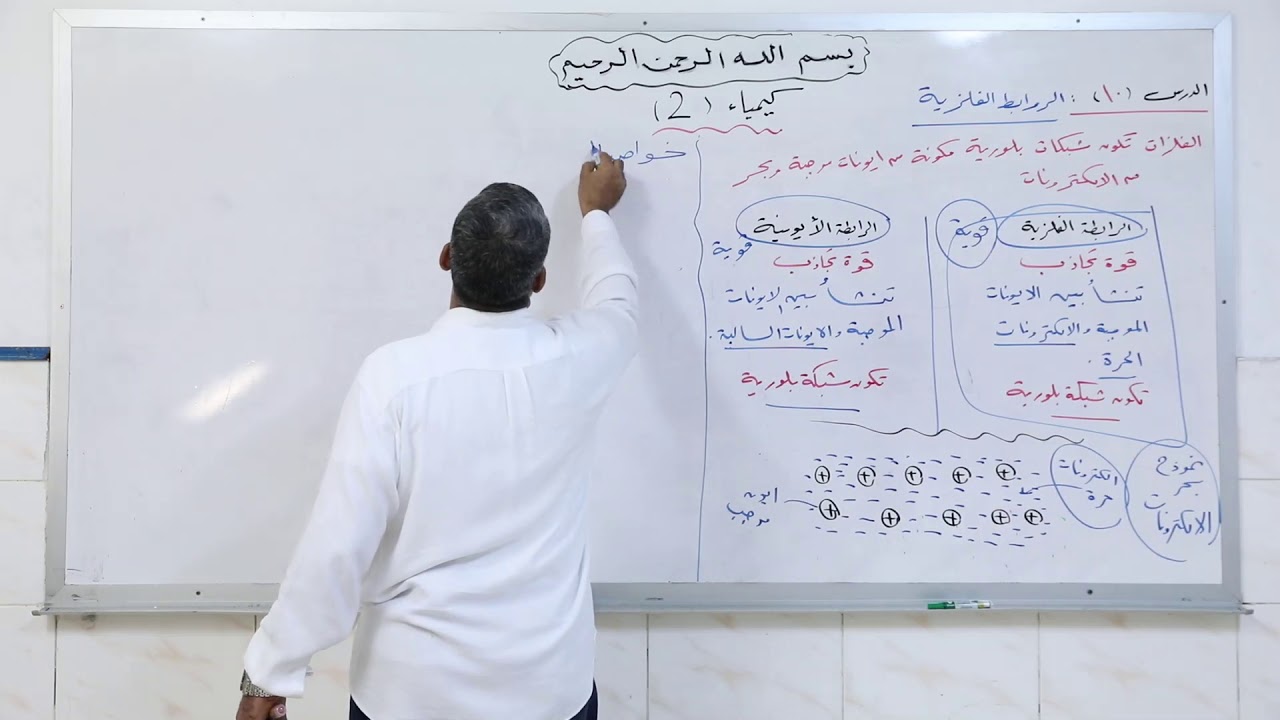 بسم الله الرحمن الرحيم
كيمياء (2)
الدرس (١٠) : الروابط الفلزية
الفلزات تكون شبكات بلورية مكونة من ايونات موجبة وبحر
من الالكترونات
الرابطة الفلزية
قوية
قوة تجاذب
تنشأ بين الايونات
الموجبة والالكترونات
الحرة .
تكون شبكة بلورية
الرابطة الأيونية
قوية
قوة تجاذب
تنشأ بين لايونات
الموجبة والايونات السالبة .
تكون شبكة بلورية
نموذج
بحر
الالكترونات
الكترونات
حرة
ايون
موجب
خواص